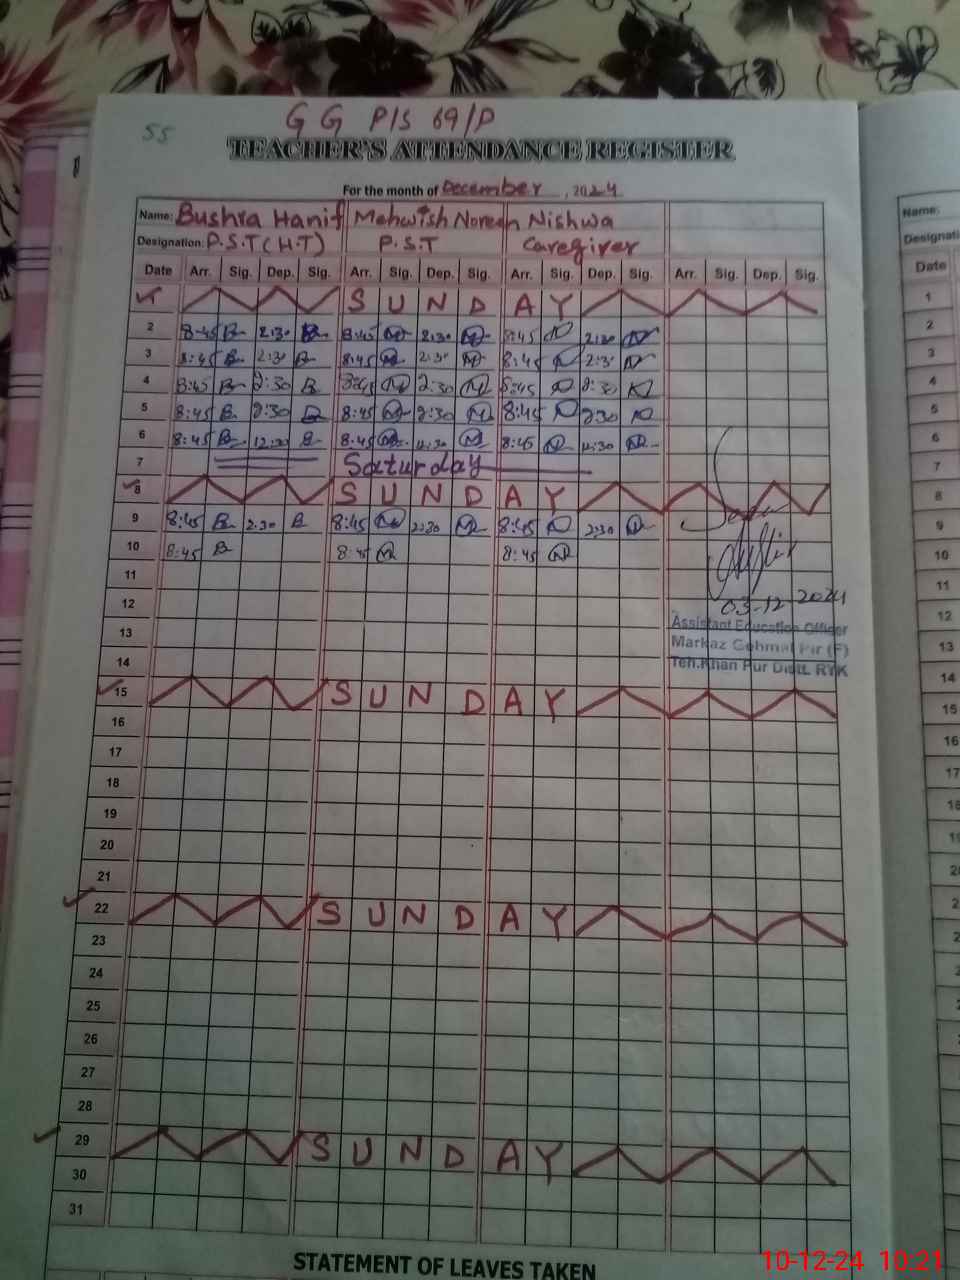 55
G G P/S 69/P
TEACHER'S ATTENDANCE REGISTER
For the month of December, 2024
Name: Bushra Hanif Mehwish Noreen Nishwa
Designation: P.S.T (H.T) P.S.T Caregiver
Date Arr. Sig. Dep. Sig. Arr. Sig. Dep. Sig. Arr. Sig. Dep. Sig. Arr. Sig. Dep. Sig.
1 S U N D A Y
2 8:45 B 2:30 B 8:45 M 2:30 M 8:45 N 2:30 N
3 8:45 B 2:30 B 8:45 M 2:30 M 8:45 N 2:30 N
4 8:45 B 2:30 B 8:45 M 2:30 M 8:45 N 2:30 N
5 8:45 B 2:30 B 8:45 M 2:30 M 8:45 N 2:30 N
6 8:45 B 12:30 B 8:45 M 12:30 M 8:45 N 12:30 N
7 Saturday
8 S U N D A Y
9 8:45 B 2:30 B 8:45 M 2:30 M 8:45 N 2:30 N
10 8:45 B 8:45 M 8:45 N
11
12
03-12-2024
13
Assistant Education Officer
Markaz Gehmal Pir (F)
14
Teh.Khan Pur Distt. RYK
15 S U N D A Y
16
17
18
19
20
21
22 S U N D A Y
23
24
25
26
27
28
29 S U N D A Y
30
31
STATEMENT OF LEAVES TAKEN
Name:
Date
1
2
3
4
5
6
7
8
9
10
11
12
13
14
15
16
10-12-24 10:21